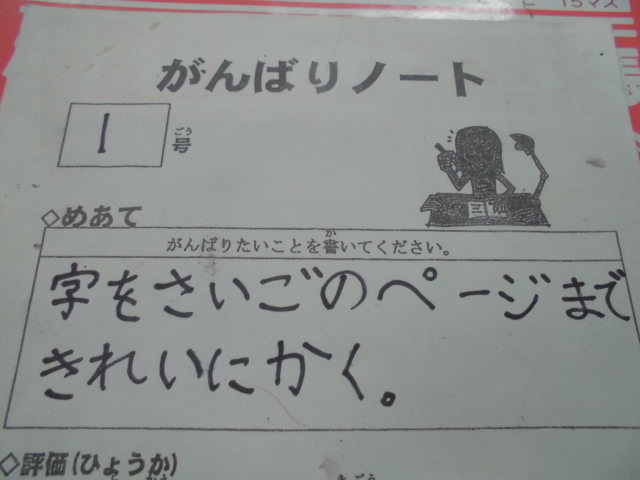 15マス
がんばりノート
1 号
ごう
◇めあて
がんばりたいことを書いてください。
か
字をさいごのページまで
きれいにかく。
◇評価(ひょうか)